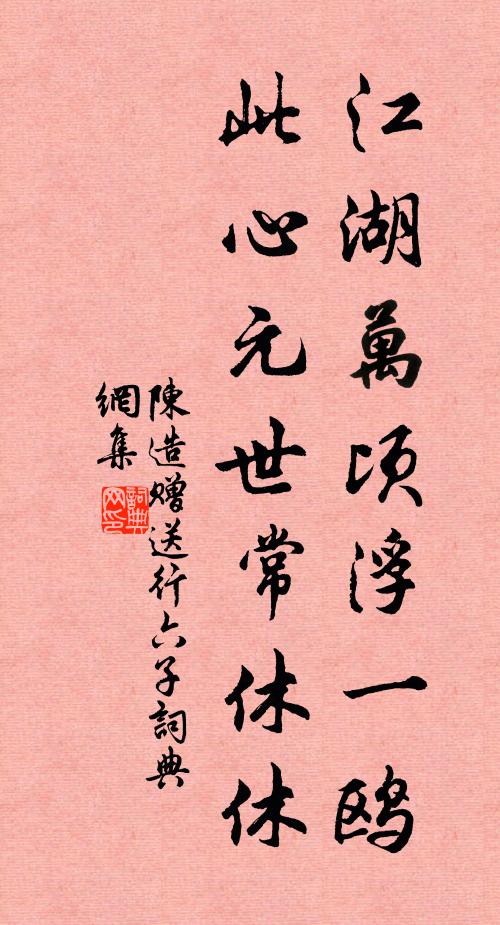 江湖萬頃浮一鸥
此心元世常休休
陳造贈送行六子詞典
網集
詞典
网印